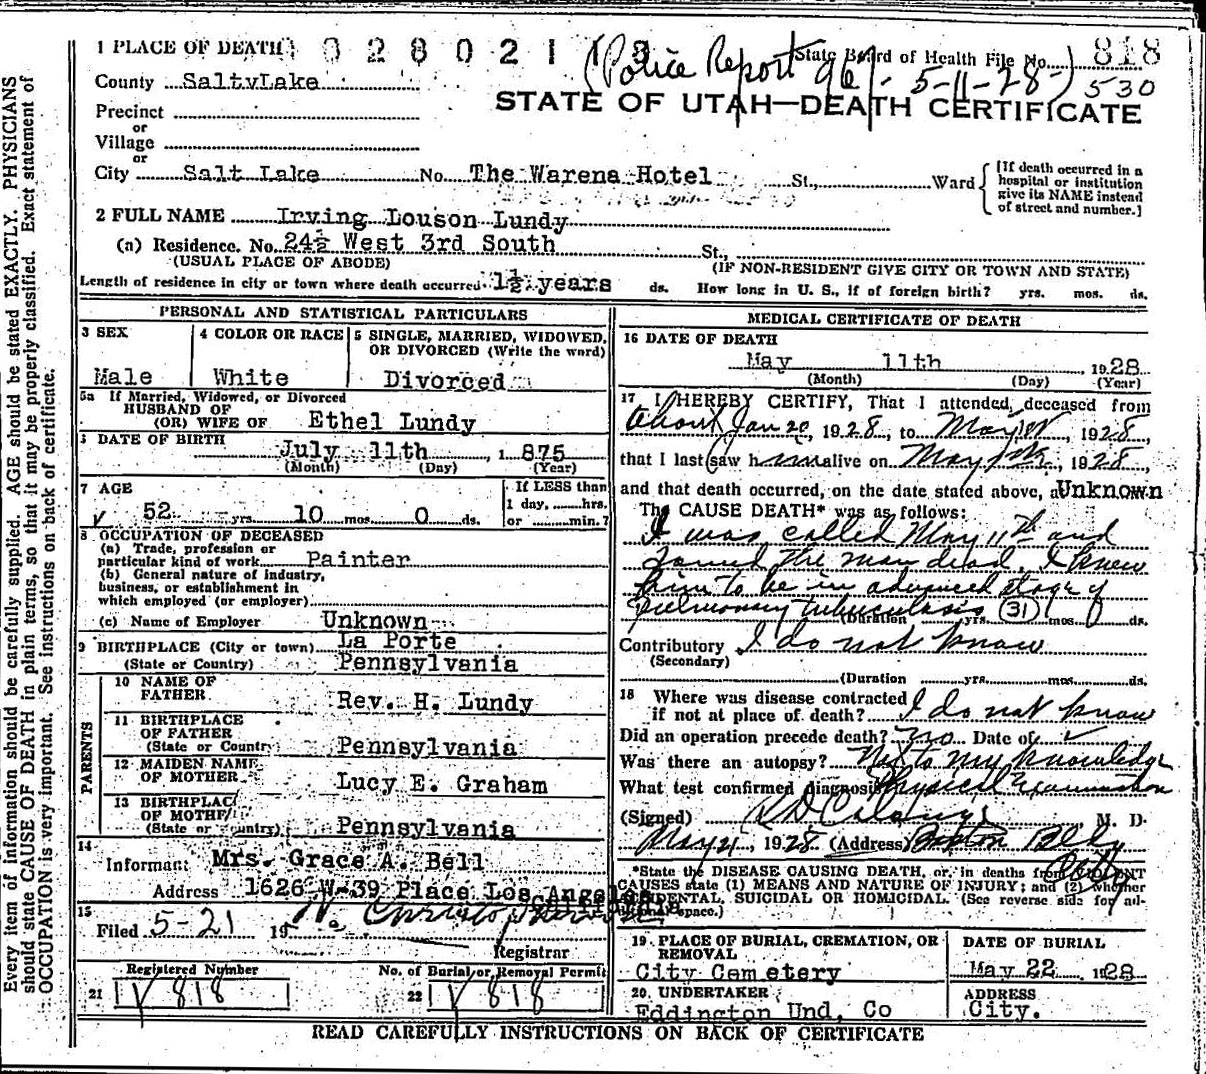 1 PLACE OF DEATH 0 3 2 8 0 2 1 1 3 State Board of Health File No. 818
(Police Report 5-11-28-) 530
County SaltvLake
STATE OF UTAH—DEATH CERTIFICATE
Precinct
or
Village
or
City Salt Lake No. The Warena Hotel St., Ward
[If death occurred in a
hospital or institution
give its NAME instead
of street and number.]
2 FULL NAME Irving Louson Lundy
(a) Residence. No. 24½ West 3rd South St.,
(USUAL PLACE OF ABODE) (IF NON-RESIDENT GIVE CITY OR TOWN AND STATE)
Length of residence in city or town where death occurred 1½ years ds. How long in U. S., if of foreign birth? yrs. mos. ds.
PERSONAL AND STATISTICAL PARTICULARS
3 SEX
Male
4 COLOR OR RACE
White
5 SINGLE, MARRIED, WIDOWED,
OR DIVORCED (Write the word)
Divorced
5a If Married, Widowed, or Divorced
HUSBAND OF
(OR) WIFE OF Ethel Lundy
DATE OF BIRTH
July 11th, 1 875
(Month) (Day) (Year)
7 AGE
52 yrs. 10 mos. 0 ds.
If LESS than
1 day, hrs.
or min.?
8 OCCUPATION OF DECEASED
(a) Trade, profession or
particular kind of work Painter
(b) General nature of industry,
business, or establishment in
which employed (or employer)
(c) Name of Employer Unknown
9 BIRTHPLACE (City or town) La Porte
(State or Country) Pennsylvania
PARENTS
10 NAME OF
FATHER Rev. H. Lundy
11 BIRTHPLACE
OF FATHER
(State or Country) Pennsylvania
12 MAIDEN NAME
OF MOTHER Lucy E. Graham
13 BIRTHPLACE
OF MOTHER
(State or Country) Pennsylvania
14
Informant Mrs. Grace A. Bell
Address 1626 W-39 Place Los Angeles
California
15
Filed 5-21 19
Registrar
Registered Number
21 818
No. of Burial or Removal Permit
22 818
MEDICAL CERTIFICATE OF DEATH
16 DATE OF DEATH
May 11th, 1928
(Month) (Day) (Year)
17 I HEREBY CERTIFY, That I attended deceased from
about Jan 20, 1928, to May, 1928,
that I last saw him alive on May, 1928,
and that death occurred, on the date stated above, at Unknown
The CAUSE DEATH* was as follows:
I was called May 11th and
found the man dead. I knew
him to be in advanced stage of
pulmonary tuberculosis (31)
(Duration yrs. mos. ds.
Contributory I do not know
(Secondary)
(Duration yrs. mos. ds.
18 Where was disease contracted
if not at place of death? I do not know
Did an operation precede death? no Date of
Was there an autopsy? Not to my knowledge
What test confirmed diagnosis Physical Examination
(Signed) M. D.
May 21, 1928 (Address) Boston Bldg
City
*State the DISEASE CAUSING DEATH, or, in deaths from VIOLENT
CAUSES state (1) MEANS AND NATURE OF INJURY; and (2) whether
ACCIDENTAL, SUICIDAL OR HOMICIDAL. (See reverse side for ad-
ditional space.)
19 PLACE OF BURIAL, CREMATION, OR
REMOVAL
City Cemetery
DATE OF BURIAL
May 22, 1928
20 UNDERTAKER
Eddington Und, Co
ADDRESS
City.
READ CAREFULLY INSTRUCTIONS ON BACK OF CERTIFICATE
Every item of information should be carefully supplied. AGE should be stated EXACTLY. PHYSICIANS
should state CAUSE OF DEATH in plain terms, so that it may be properly classified. Exact statement of
OCCUPATION is very important. See instructions on back of certificate.